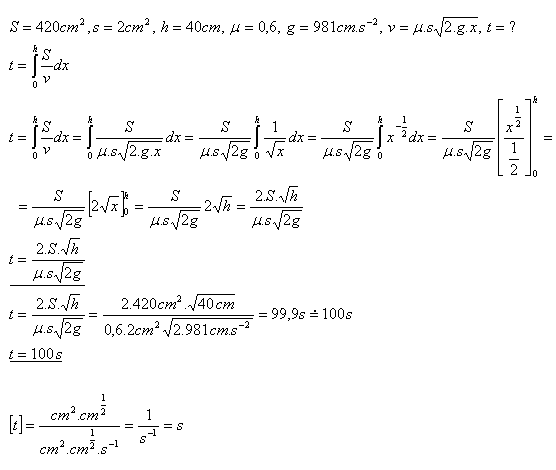 S = 420cm², s = 2cm², h = 40cm, μ = 0,6, g = 981cm.s⁻², v = μ.s√(2.g.x), t = ?
t = ∫₀ʰ S/v dx
t = ∫₀ʰ S/v dx = ∫₀ʰ S/(μ.s√(2.g.x)) dx = S/(μ.s√(2g)) ∫₀ʰ 1/√x dx = S/(μ.s√(2g)) ∫₀ʰ x^(-1/2) dx = S/(μ.s√(2g)) [x^(1/2)/(1/2)]₀ʰ =
= S/(μ.s√(2g)) [2√x]₀ʰ = S/(μ.s√(2g)) 2√h = 2.S.√h/(μ.s√(2g))
t = 2.S.√h/(μ.s√(2g))
t = 2.S.√h/(μ.s√(2g)) = 2.420cm².√(40cm)/(0,6.2cm²√(2.981cm.s⁻²)) = 99,9s ≐ 100s
t = 100s
[t] = cm².cm^(1/2)/(cm².cm^(1/2).s⁻¹) = 1/s⁻¹ = s